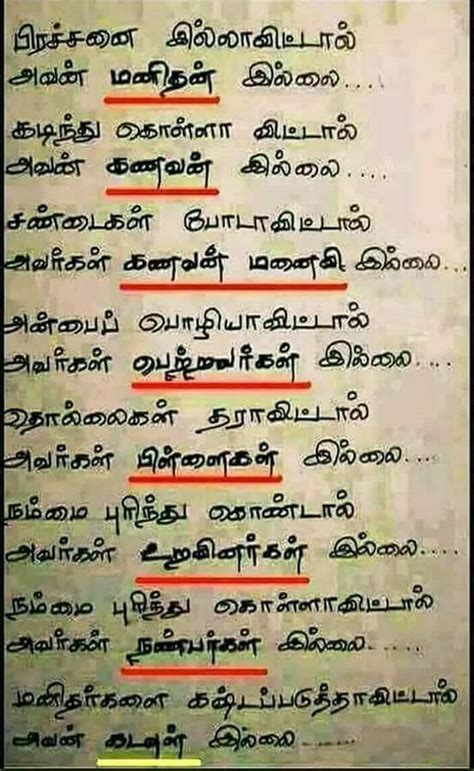 பிரச்சனை இல்லாவிட்டால்
அவன் மனிதன் இல்லை....
கடிந்து கொள்ளா விட்டால்
அவன் கணவன் இல்லை....
சண்டைகள் போடாவிட்டால்
அவர்கள் கணவன் மனைவி இல்லை...
அன்பைப் பொழியாவிட்டால்
அவர்கள் பெற்றவர்கள் இல்லை....
தொல்லைகள் தராவிட்டால்
அவர்கள் பிள்ளைகள் இல்லை....
நம்மை புரிந்து கொண்டால்
அவர்கள் உறவினர்கள் இல்லை....
நம்மை புரிந்து கொள்ளாவிட்டால்
அவர்கள் நண்பர்கள் இல்லை.....
மனிதர்களை கஷ்டப்படுத்தாவிட்டால்
அவன் கடவுள் இல்லை......